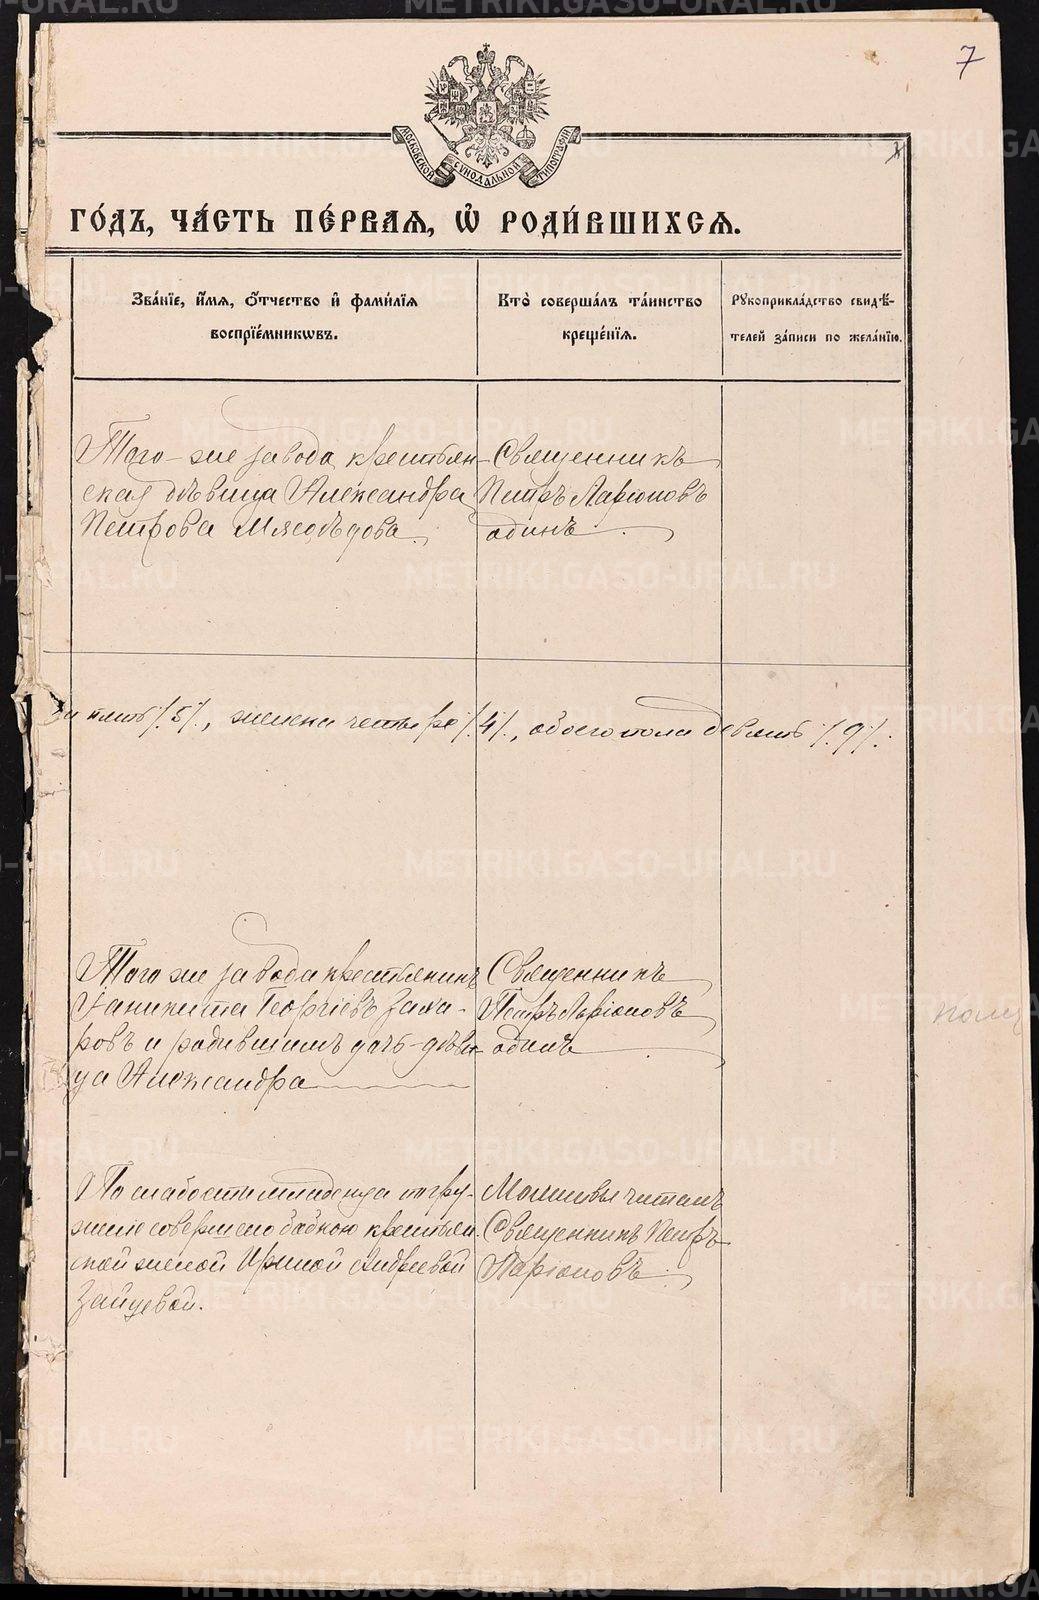 7
МОСКОВСКОЙ СѴНОДАЛЬНОЙ ТИПОГРАФІИ
ГО́ДЪ, ЧА́СТЬ ПЕ́РВАѦ, Ѡ҆ РОДИ́ВШИХСѦ.
Зва́нїе, и҆́мѧ, ѻ҆́тчество и҆ фами́лїѧ
воспрїе́мникѡвъ.
Кто̀ соверша́лъ та́инство
креще́нїѧ.
Рꙋкоприкла́дство свидѣ́-
телей за́писи по жела́нїю.
Того-же завода, крестьян
ская дѣвица Александра
Петрова Мясоѣдова
Священникъ
Петръ Ларіоновъ
одинъ
пять /.5/., женска четыре /.4/., обоего пола девять /.9/.
Того же завода крестьянинъ
Георгіевъ Заха-
ровъ и родившимъ дочь-дѣви
ца Александра
Священникъ
Петръ Ларіоновъ
одинъ
По слабости младенца погру-
женіе совершено бабкою крестьян
ской женой Ириной Андреевой
Зайцевой.
Молитвы читалъ
Священникъ Петръ
Ларіоновъ
METRIKI.GASO-URAL.RU